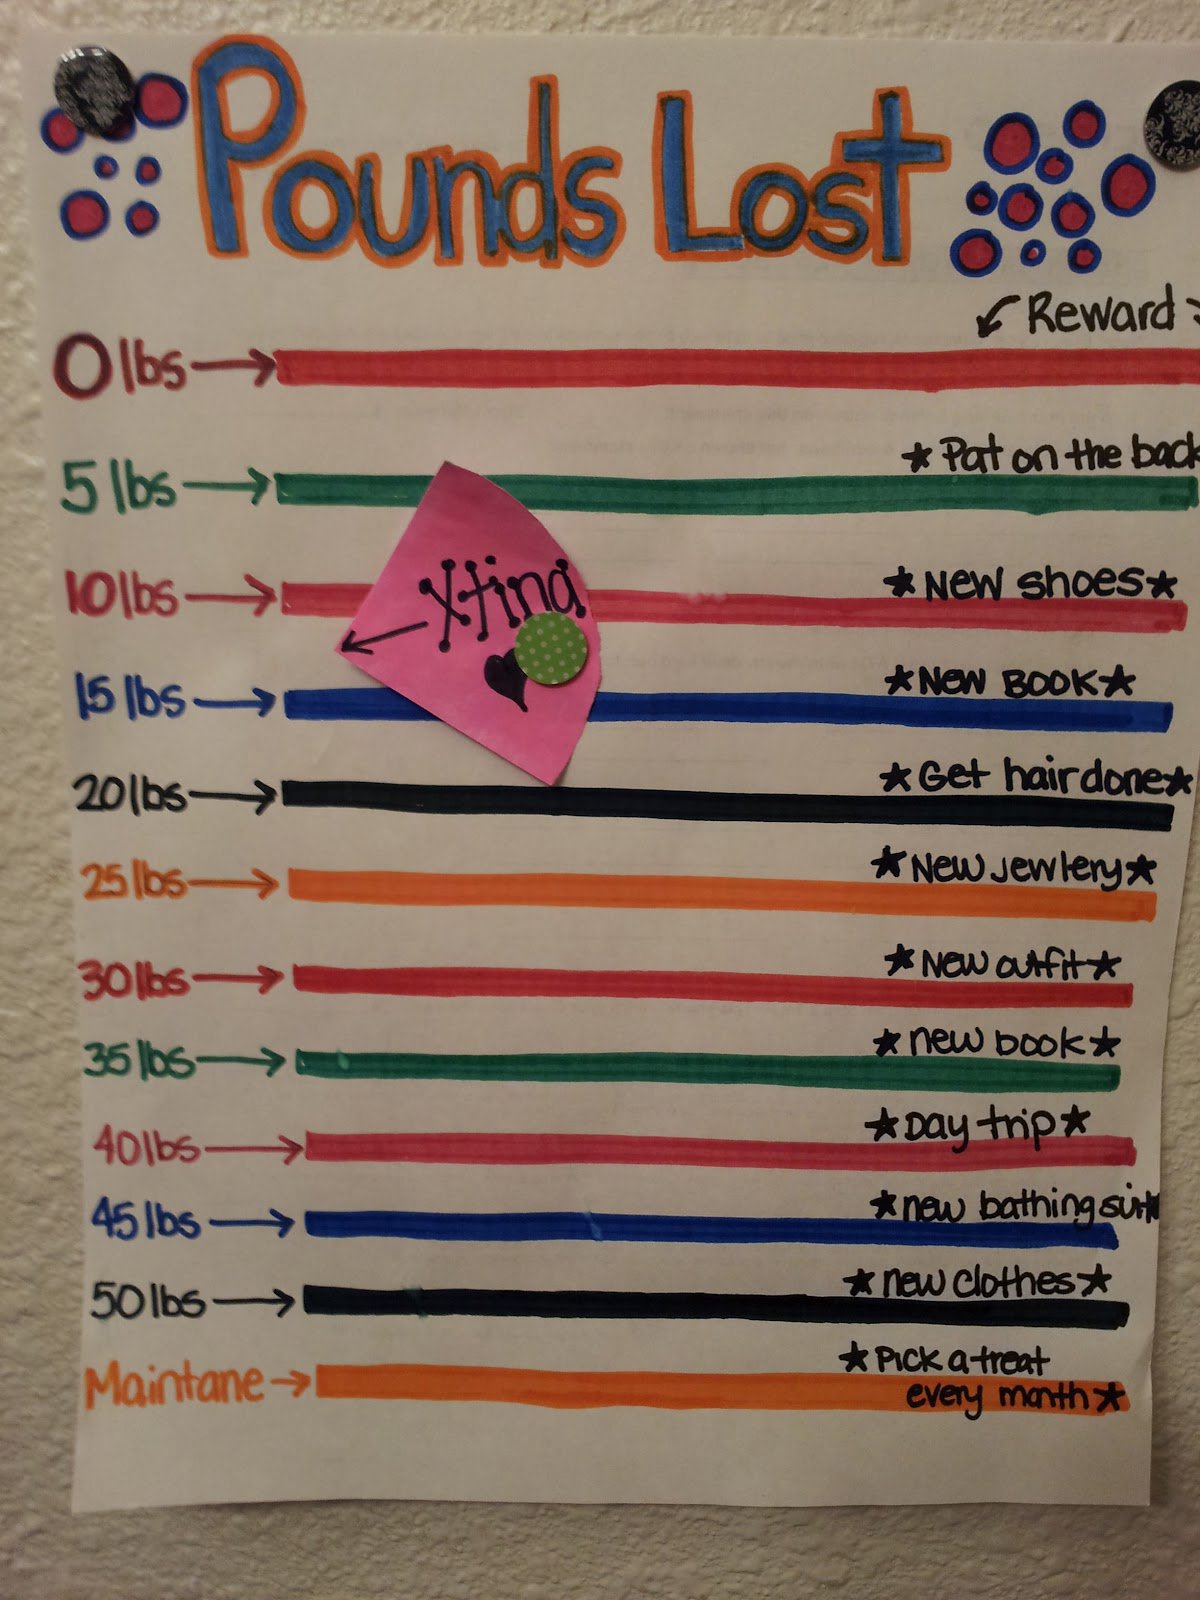 Pounds Lost
Reward
0 lbs
5 lbs
★ Pat on the back
10 lbs
★ New shoes ★
xtina
15 lbs
★ New BOOK ★
20 lbs
★ Get hair done ★
25 lbs
★ New jewlery ★
30 lbs
★ New outfit ★
35 lbs
★ new book ★
40 lbs
★ Day trip ★
45 lbs
★ new bathing suit ★
50 lbs
★ new clothes ★
Maintane
★ Pick a treat
every month ★